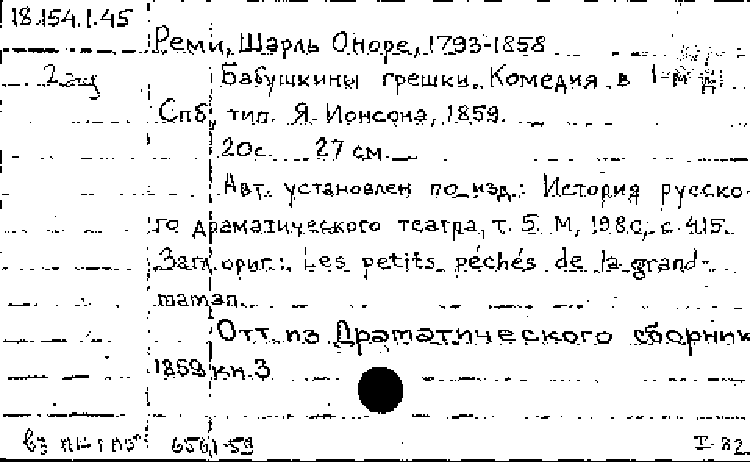 18.154.1.45
Реми, Шарль Оноре, 1793-1858
2 экз
Бабушкины грешки. Комедия в 1-м д.
Спб, тип. Я. Ионсона, 1859.
20с. 27 см.
Авт. установлен по изд.: История русско-
го драматического театра, т. 5. М, 1980, с. 415.
Загл. ориг.: Les petits péchés de la grand-
maman.
Отт. из Драматического сборник
1859 кн. 3
II-82